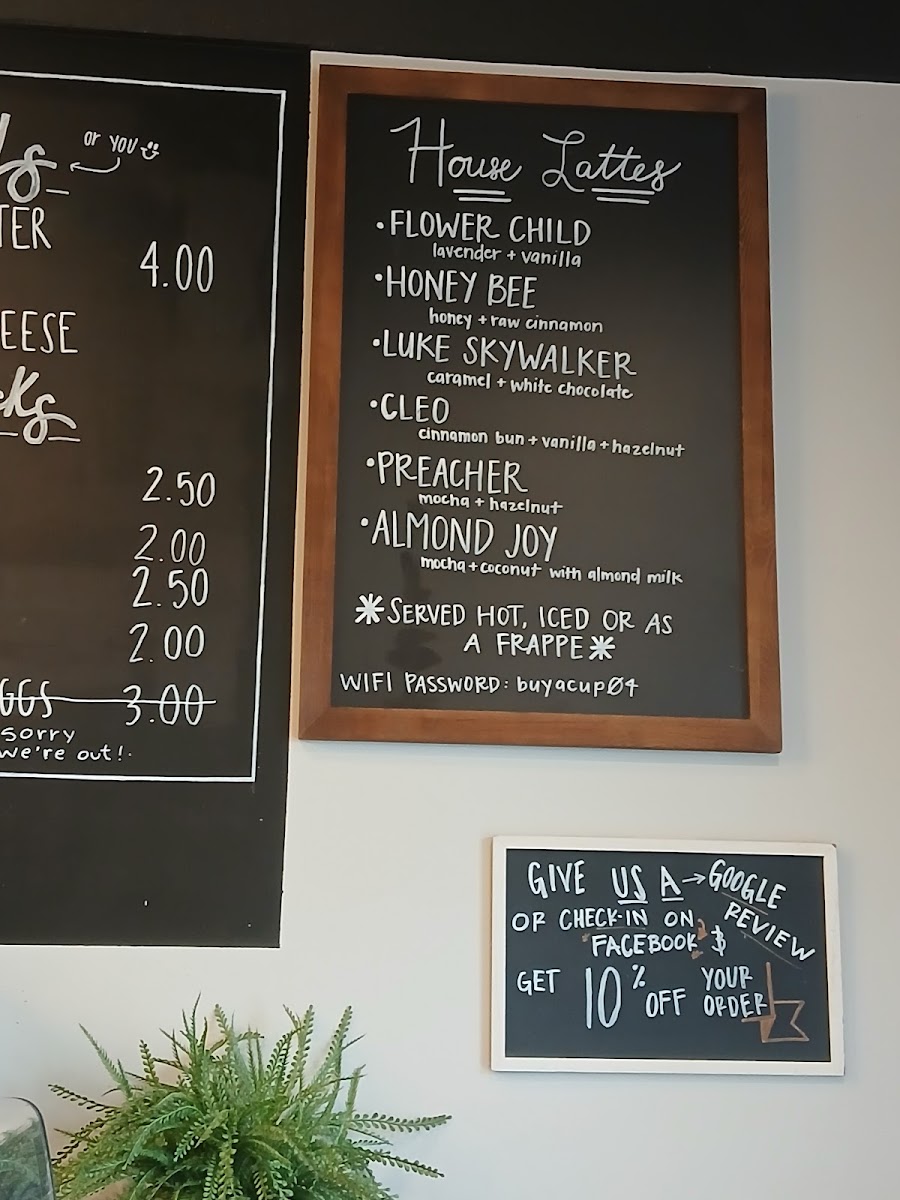 or you
4.00
2.50
2.00
2.50
2.00
3.00
sorry
we're out!
House Lattes
• FLOWER CHILD
lavender + vanilla
• HONEY BEE
honey + raw cinnamon
• LUKE SKYWALKER
caramel + white chocolate
• CLEO
cinnamon bun + vanilla + hazelnut
• PREACHER
mocha + hazelnut
• ALMOND JOY
mocha + coconut with almond milk
* SERVED HOT, ICED OR AS
A FRAPPE *
WIFI PASSWORD: buyacup04
GIVE US A → GOOGLE
REVIEW
OR CHECK-IN ON
FACEBOOK $
GET 10% OFF YOUR
ORDER